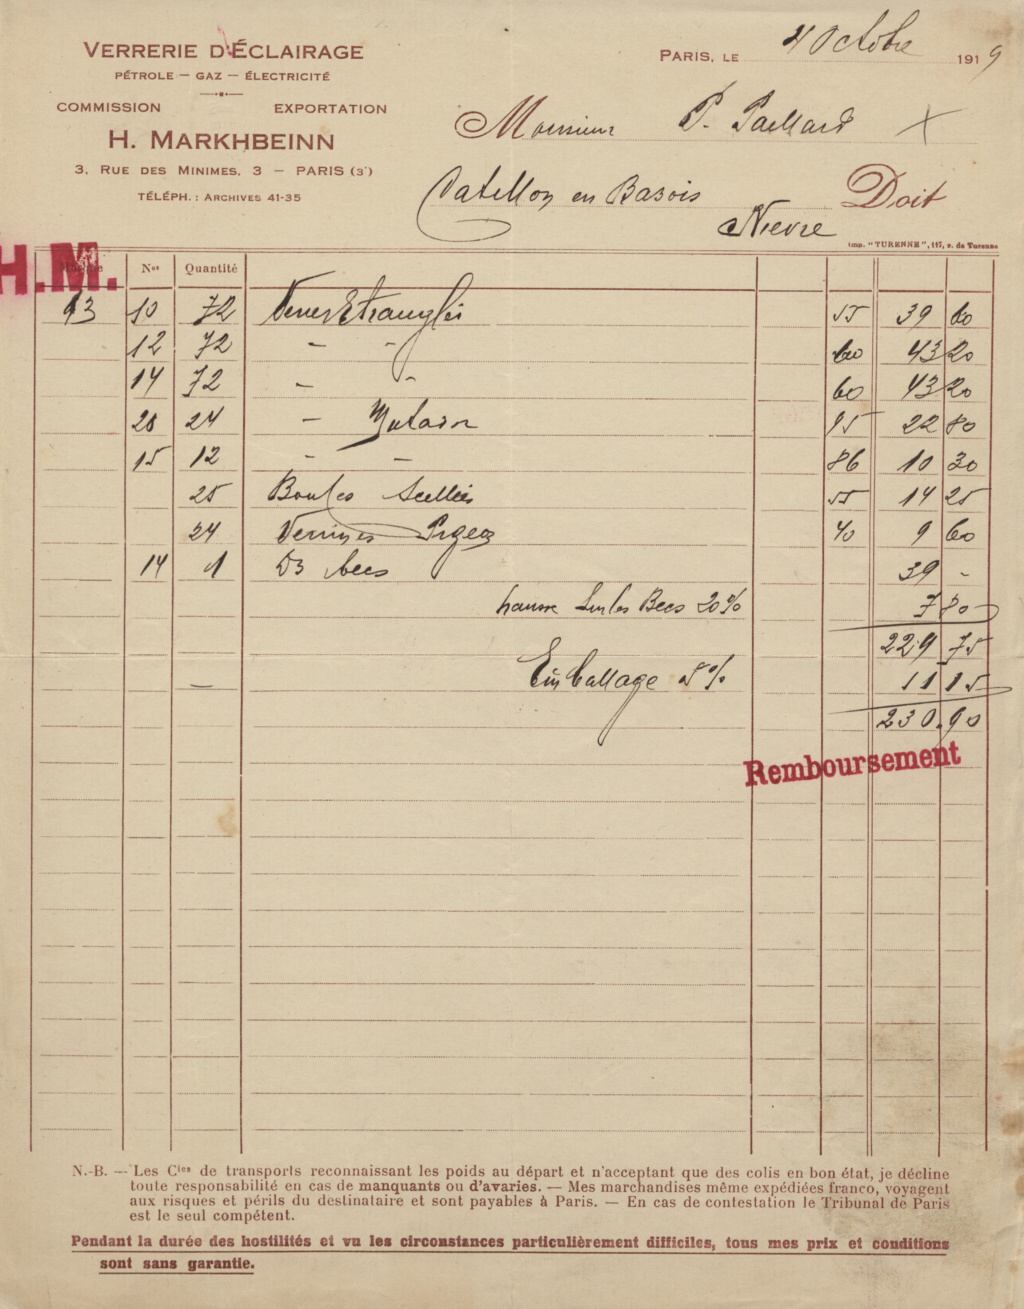 VERRERIE D'ÉCLAIRAGE
PÉTROLE — GAZ — ÉLECTRICITÉ
COMMISSION EXPORTATION
H. MARKHBEINN
3, RUE DES MINIMES, 3 — PARIS (3e)
TÉLÉPH. : ARCHIVES 41-35
PARIS, LE 4 Octobre 1919
Monsieur P. Paillard
Catillon en Bazois Doit
Nievre
Imp. "TURENNE", 117, r. de Turenne
H.M.
Marque Nos Quantité
93 10 72 Verres Etranglés 55 39 60
12 72 - - 60 43 20
14 72 - - 60 43 20
20 24 - Matador 95 22 80
15 12 - - 86 10 30
25 Boules Scellées 55 14 25
24 Verrines Pigeon 40 9 60
14 1 Dz becs 39 -
hausse sur les Becs 20% 7 80
229 75
— Emballage 5% 11 15
230.90
Remboursement
N.-B. — Les Cies de transports reconnaissant les poids au départ et n'acceptant que des colis en bon état, je décline
toute responsabilité en cas de manquants ou d'avaries. — Mes marchandises même expédiées franco, voyagent
aux risques et périls du destinataire et sont payables à Paris. — En cas de contestation le Tribunal de Paris
est le seul compétent.
Pendant la durée des hostilités et vu les circonstances particulièrement difficiles, tous mes prix et conditions
sont sans garantie.